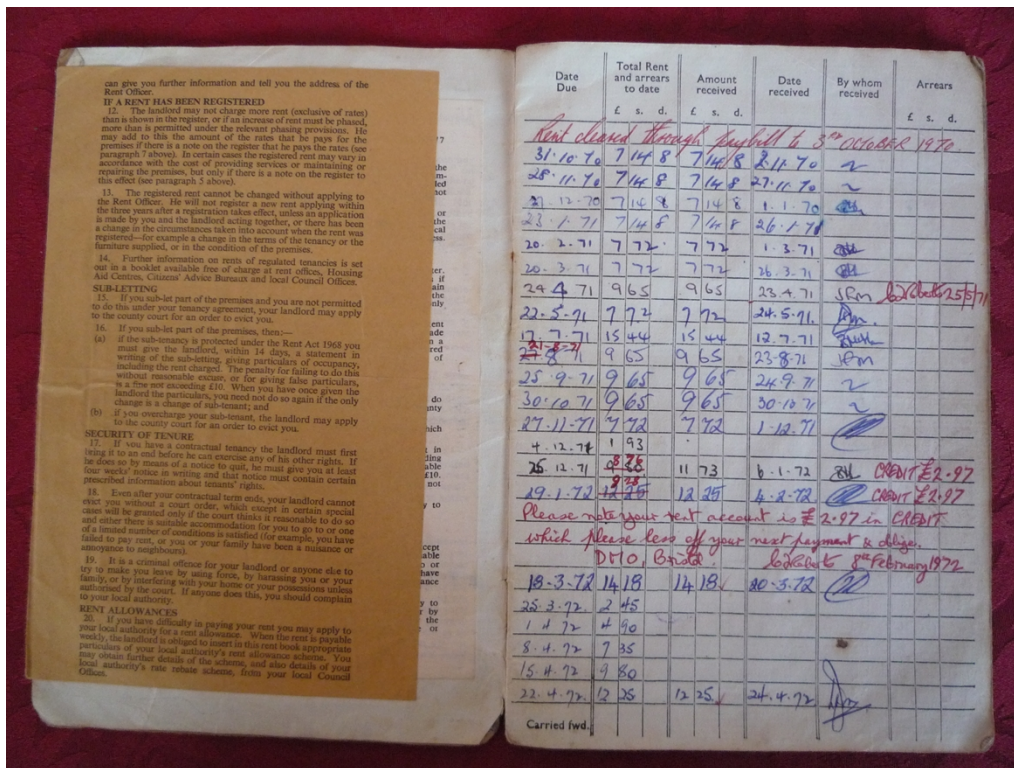 can give you further information and tell you the address of the
Rent Officer.
IF A RENT HAS BEEN REGISTERED
12. The landlord may not charge more rent (exclusive of rates)
than is shown in the register, or if an increase of rent must be phased,
more than is permitted under the relevant phasing provisions. He
may add to this the amount of the rates that he pays for the
premises if there is a note on the register that he pays the rates (see
paragraph 7 above). In certain cases the registered rent may vary in
accordance with the cost of providing services or maintaining or
repairing the premises, but only if there is a note on the register to
this effect (see paragraph 5 above).
13. The registered rent cannot be changed without applying to
the Rent Officer. He will not register a new rent applying within
the three years after a registration takes effect, unless an application
is made by you and the landlord acting together, or there has been
a change in the circumstances taken into account when the rent was
registered—for example a change in the terms of the tenancy or the
furniture supplied, or in the condition of the premises.
14. Further information on rents of regulated tenancies is set
out in a booklet available free of charge at rent offices, Housing
Aid Centres, Citizens' Advice Bureaux and local Council Offices.
SUB-LETTING
15. If you sub-let part of the premises and you are not permitted
to do this under your tenancy agreement, your landlord may apply
to the county court for an order to evict you.
16. If you sub-let part of the premises, then:—
(a) if the sub-tenancy is protected under the Rent Act 1968 you
must give the landlord, within 14 days, a statement in
writing of the sub-letting, giving particulars of occupancy,
including the rent charged. The penalty for failing to do this
without reasonable excuse, or for giving false particulars,
is a fine not exceeding £10. When you have once given
the landlord the particulars, you need not do so again if the only
change is a change of sub-tenant; and
(b) if you overcharge your sub-tenant, the landlord may apply
to the county court for an order to evict you.
SECURITY OF TENURE
17. If you have a contractual tenancy the landlord must first
bring it to an end before he can exercise any of his other rights. If
he does so by means of a notice to quit, he must give you at least
four weeks' notice in writing and that notice must contain certain
prescribed information about tenants' rights.
18. Even after your contractual term ends, your landlord cannot
evict you without a court order, which except in certain special
cases will be granted only if the court thinks it reasonable to do so
and either there is suitable accommodation for you to go to or one
of a limited number of conditions is satisfied (for example, you have
failed to pay rent, or you or your family have been a nuisance or
annoyance to neighbours).
19. It is a criminal offence for your landlord or anyone else to
try to make you leave by using force, by harassing you or your
family, or by interfering with your home or your possessions unless
authorised by the court. If anyone does this, you should complain
to your local authority.
RENT ALLOWANCES
20. If you have difficulty in paying your rent you may apply to
your local authority for a rent allowance. When the rent is payable
weekly, the landlord is obliged to insert in this rent book appropriate
particulars of your local authority's rent allowance scheme. You
may obtain further details of the scheme, and also details of your
local authority's rate rebate scheme, from your local Council
Offices.
Date Due Total Rent and arrears to date Amount received Date received By whom received Arrears
£ s. d. £ s. d. £ s. d.
Rent cleared through paybill to 3RD OCTOBER 1970
31.10.70 7 14 8 7 14 8 2.11.70
28.11.70 7 14 8 7 14 8 27.11.70
12.70 7 14 8 7 14 8 1.1.70
23.1.71 7 14 8 7 14 8 26.1.71
20.2.71 7 72 7 72 1.3.71
20.3.71 7 72 7 72 26.3.71
24 4 71 9 65 9 65 23.4.71 25/5/71
22.5.71 7 72 7 72 24.5.71.
17.7.71 15 44 15 44 12.7.71
21-8-71
8 71 9 65 9 65 23.8.71
25.9.71 9 65 9 65 24.9.71
30.10.71 9 65 9 65 30.10.71
27.11.71 7 72 7 72 1.12.71
4.12.71 1 93
25.12.71 11 73 6.1.72 CREDIT £2.97
29.1.72 12 25 12 25 4.2.72 CREDIT £2.97
Please note your rent account is £2.97 in CREDIT
which please less off your next payment & oblige.
DMO, Bristol. 8th February 1972
18.3.72 14 18 14 18 20.3.72
25.3.72 2 45
1 4 72 4 90
8.4.72 7 35
15.4.72 9 80
22.4.72. 12 25 12 25 24.4.72
Carried fwd.